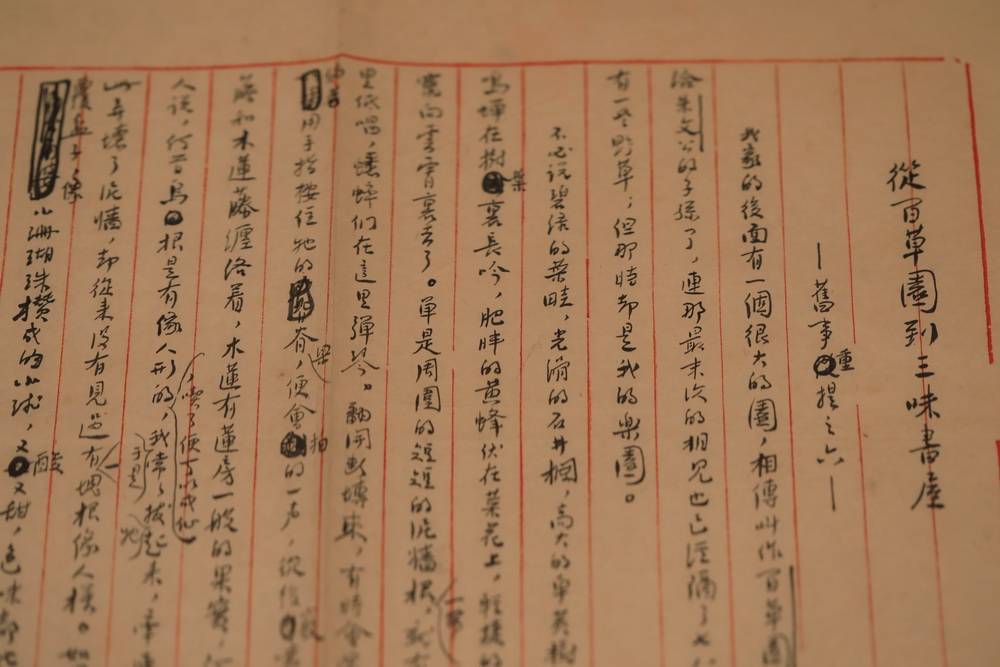 從百草園到三味書屋
—舊事重提之六—
我家的後面有一個很大的園，相傳叫作百草園
給朱文公的子孫了，連那最末次的相見也已經隔了七八
有一些野草；但那時却是我的樂園。
不必說碧綠的菜畦，光滑的石井欄，高大的皁莢樹
鳴蟬在樹葉裏長吟，肥胖的黃蜂伏在菜花上，輕捷的
竄向雲霄裏去了。單是周圍的短短的泥牆根，就有
里低唱，蟋蟀們在這里彈琴。翻開斷塼來，有時會
用手指按住牠的脊梁，便會拍的一声，從後
藤和木蓮藤纏絡着，木蓮有蓮房一般的果實，
人說，何首烏根是有像人形的，喫了便可以成仙，我于是常常拔牠起來，牽連
弄壞了泥牆，却從來沒有見過有一塊根像人樣。如
覆盆子，像小珊瑚珠攢成的小球，又酸又甜，色味都比